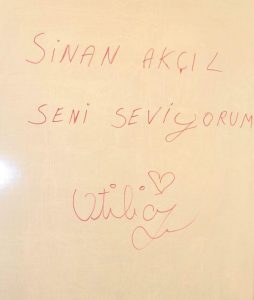 SİNAN AKÇIL
SENİ SEVİYORUM